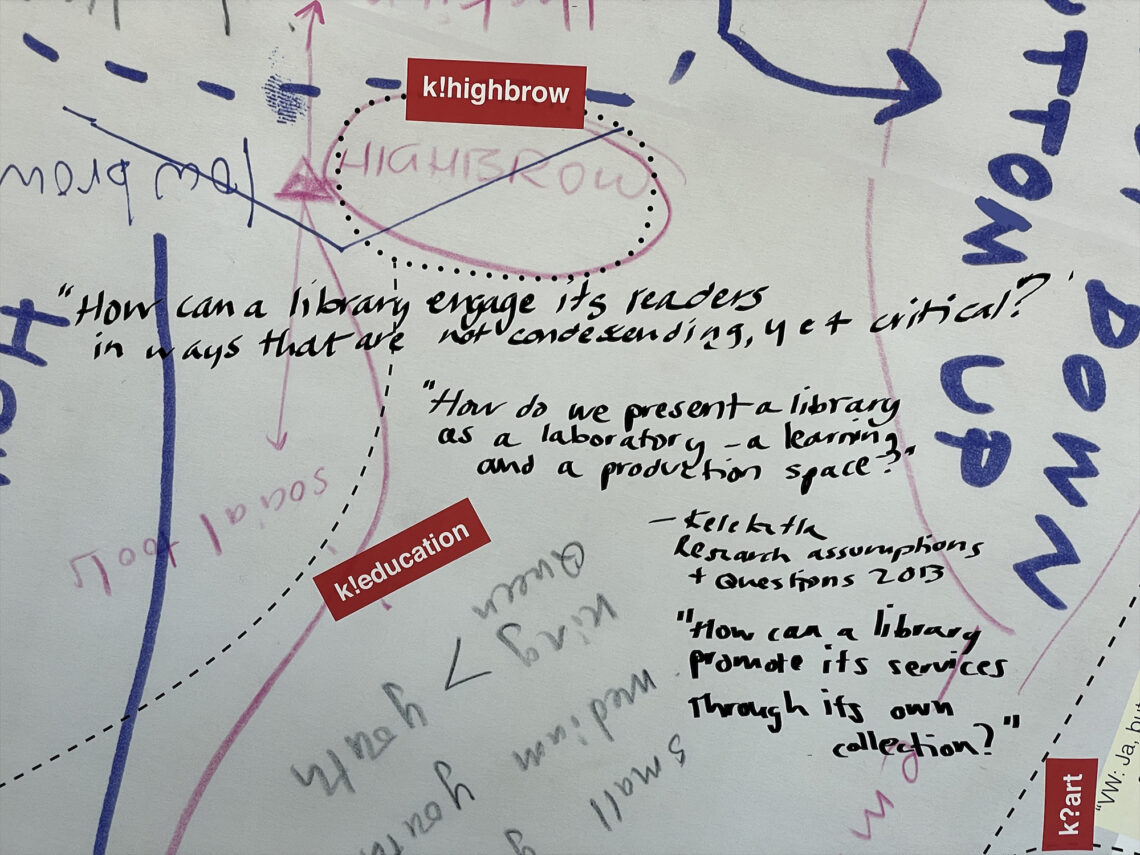 k!highbrow
HIGHBROW
low brow
BOTTOM UP
DOWN
"How can a library engage its readers
in ways that are not condescending, yet critical?"
"How do we present a library
as a laboratory – a learning
and a production space?"
social tools
k!education
– Keleketla
Research assumptions
+ Questions 2013
"How can a library
promote its services
through its own
collection?"
Queen
King
> youth
medium
small
k?art
"VW: Ja, but